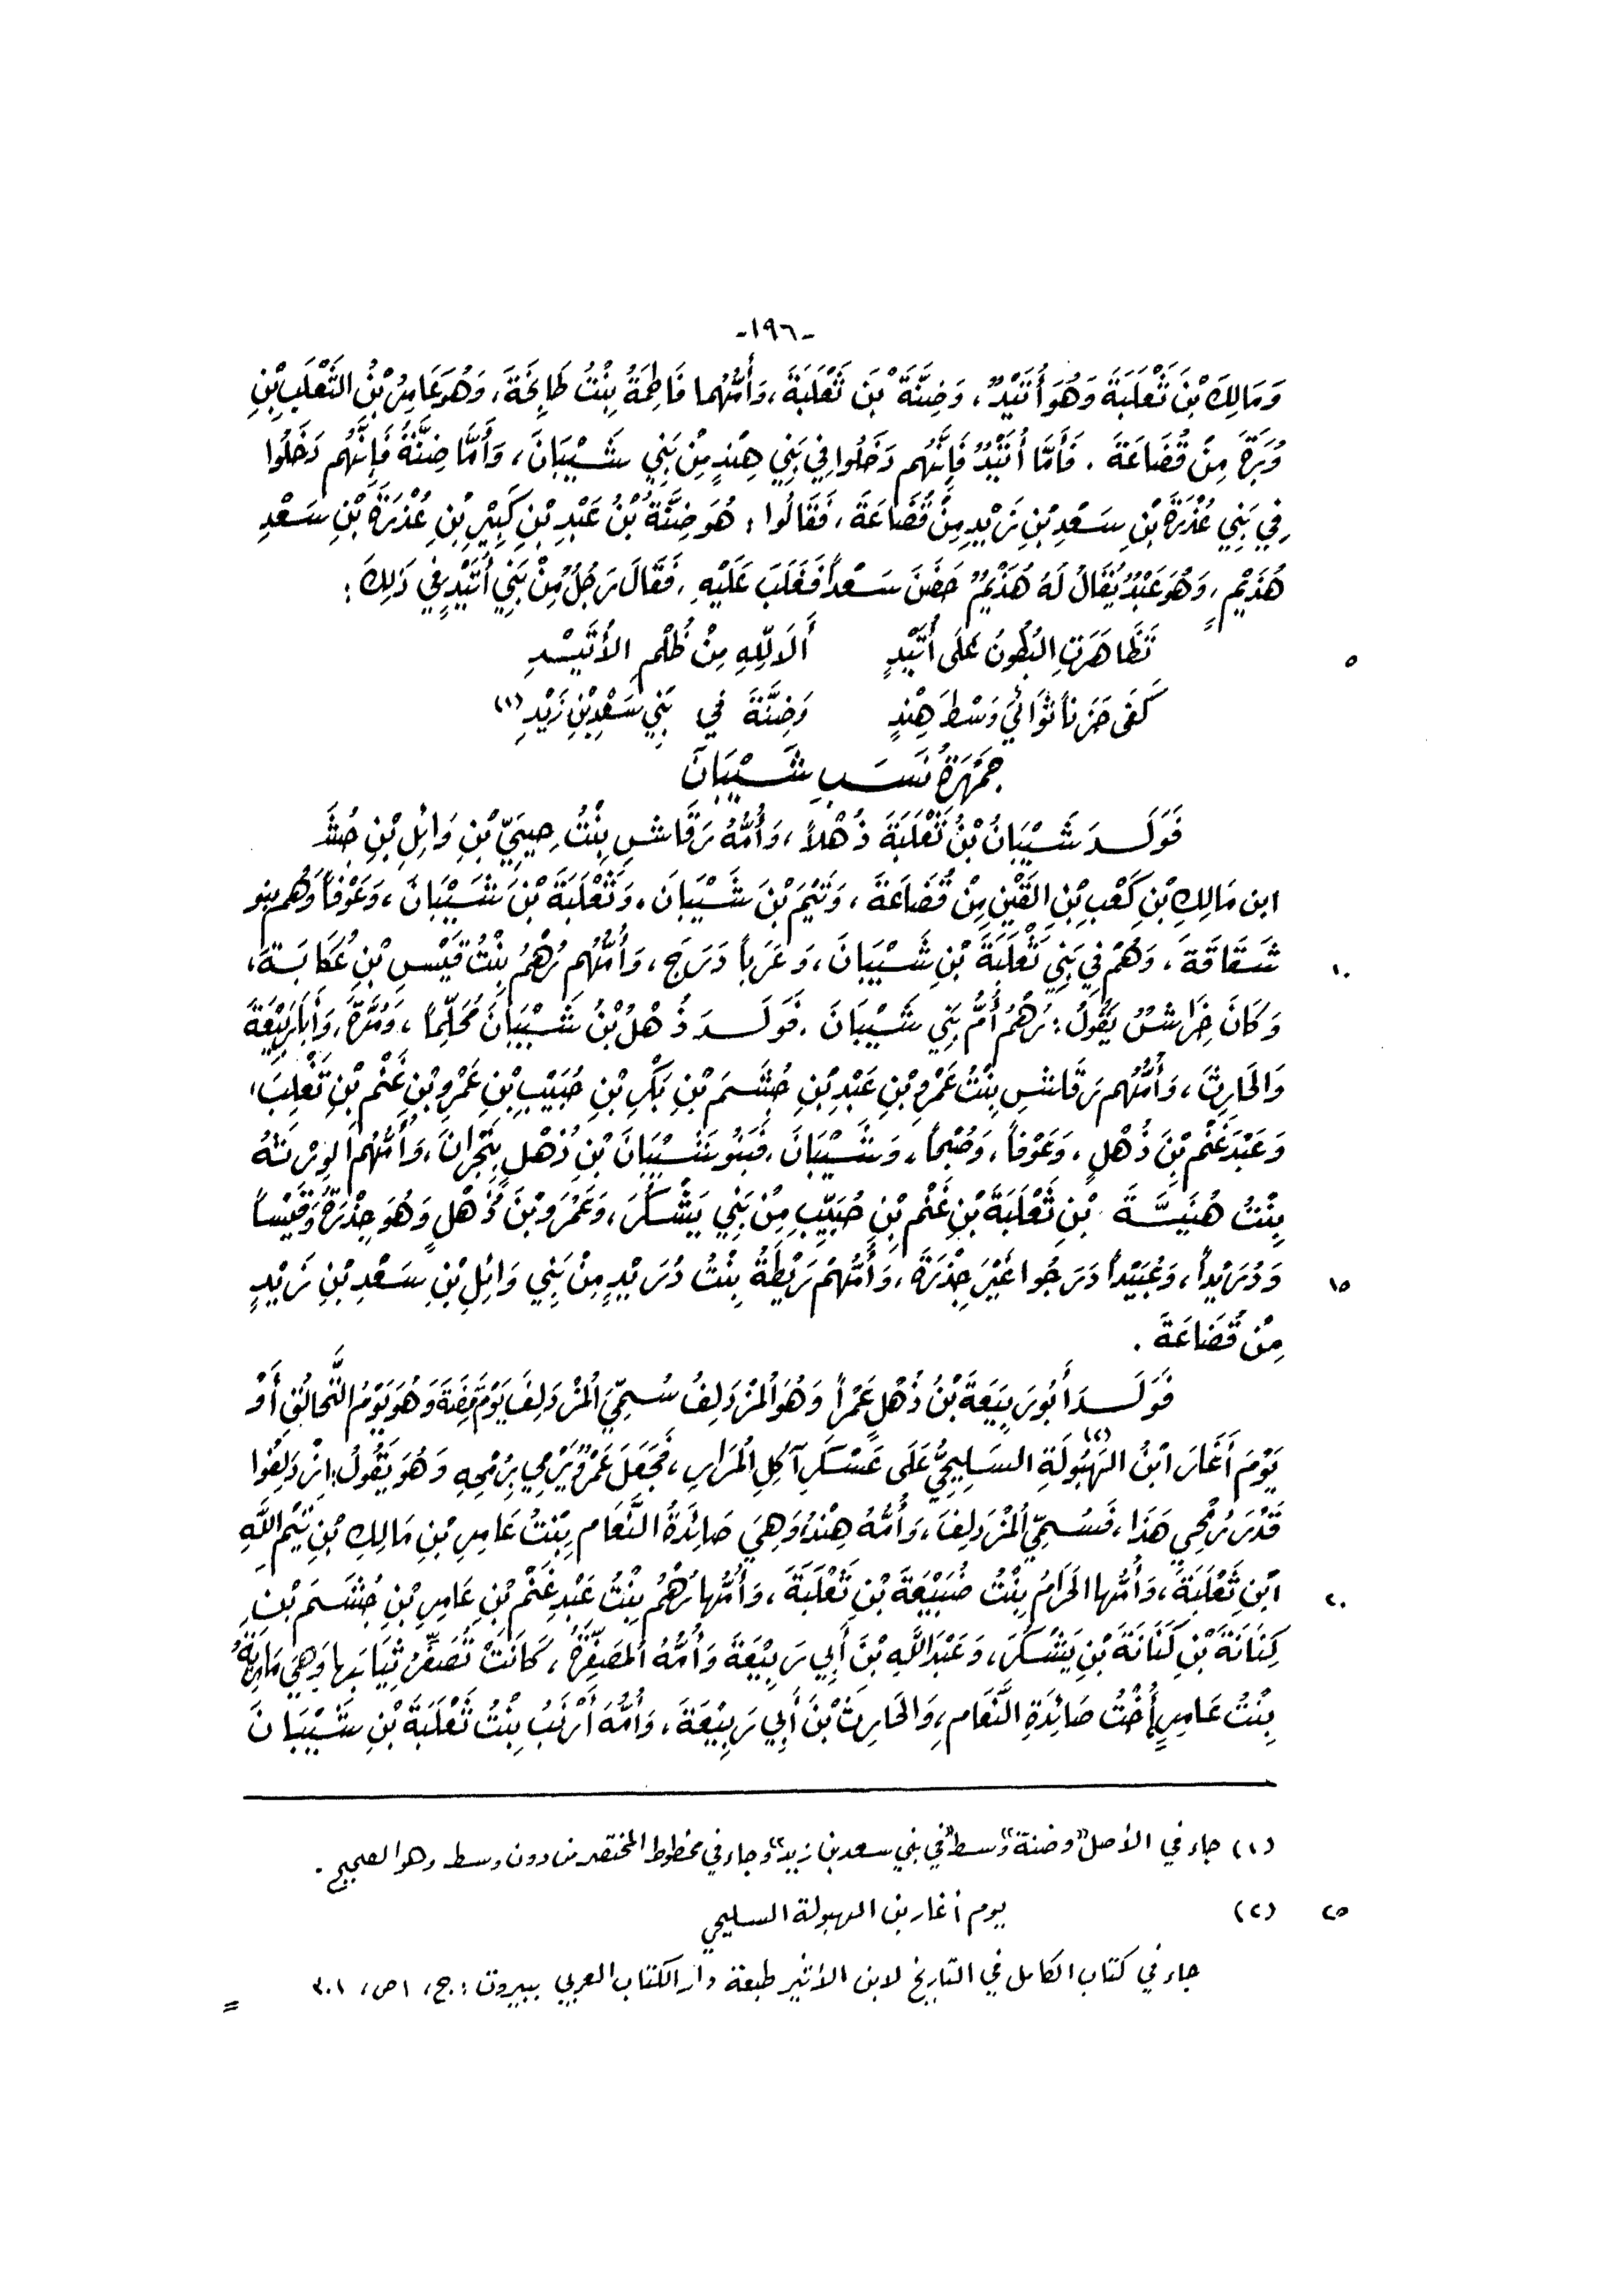 -١٩٦-
وَمَالِكَ بْنَ ثَعْلَبَةَ وَهُوَ أُتَيْدٌ، وَضِنَّةَ بْنَ ثَعْلَبَةَ، وَأُمُّهُما فَاطِمَةُ بِنْتُ طَابِخَةَ، وَهُوَ عَامِرُ بْنُ الثَّعْلَبِ بْنِ
وَبَرَةَ مِنْ قُضَاعَةَ. فَأَمَّا أُتَيْدٌ فَإِنَّهُم دَخَلُوا فِي بَنِي هِنْدٍ مِنْ بَنِي شَيْبَانَ، وَأَمَّا ضِنَّةُ فَإِنَّهُم دَخَلُوا
فِي بَنِي عُذْرَةَ بْنِ سَعْدِ بْنِ زَيْدٍ مِنْ قُضَاعَةَ، فَقَالُوا: هُوَ ضِنَّةُ بْنُ عَبْدِ بْنِ كَبِيْرِ بْنِ عُذْرَةَ بْنِ سَعْدِ
هُذَيْمٍ، وَهُوَ عَبْدٌ يُقَالُ لَهُ هُذَيْمٌ حَضَنَ سَعْداً فَغَلَبَ عَلَيْهِ، فَقَالَ رَجُلٌ مِنْ بَنِي أُتَيْدٍ فِي ذَلِكَ:
تَظَاهَرَتِ البُطُونُ عَلَى أُتَيْدٍ أَلَا لِلّهِ مِنْ ظُلْمِ الأُتَيْدِ
٥
كَفَى حَزَناً ثَوَائِي وَسْطَ هِنْدٍ وَضِنَّةَ فِي بَنِي سَعْدِ بْنِ زَيْدِ (١)
جَمْهَرَةُ نَسَبِ شَيْبَانَ
فَوَلَدَ شَيْبَانُ بْنُ ثَعْلَبَةَ ذُهْلاً، وَأُمُّهُ رَقَاشِ بِنْتُ حِيَيِّ بْنِ وَائِلِ بْنِ جُشَمَ
ابن مَالِكِ بْنِ كَعْبِ بْنِ القَيْنِ مِنْ قُضَاعَةَ، وَتَيْمَ بْنَ شَيْبَانَ، وَثَعْلَبَةَ بْنَ شَيْبَانَ، وَعَوْفاً وَهُم بنو
شَقَاقَةَ، وَهُمْ فِي بَنِي ثَعْلَبَةَ بْنِ شَيْبَانَ، وَعَرَباً دَرَجَ، وَأُمُّهُم رُهْمُ بِنْتُ قَيْسِ بْنِ عُكَابَةَ،
١٠
وَكَانَ خِرَاشٌ يَقُولُ: رُهْمُ أُمُّ بَنِي شَيْبَانَ. فَوَلَدَ ذُهْلُ بْنُ شَيْبَانَ مُحَلِّماً، وَمُرَّةَ، وَأَبَا رَبِيْعَةَ
وَالحَارِثَ، وَأُمُّهُم رَقَاشِ بِنْتُ عَمْرِو بْنِ عَبْدِ بْنِ جُشَمَ بْنِ بَكْرِ بْنِ حُبَيْبِ بْنِ عَمْرِو بْنِ غَنْمِ بْنِ تَغْلِبَ،
وَعَبْدَ غَنْمِ بْنَ ذُهْلٍ، وَعَوْفاً، وَصُبْحاً، وَشَيْبَانَ، فَبَنُو شَيْبَانَ بْنِ ذُهْلٍ بِنَجْرَانَ، وَأُمُّهُم الوِرْثَةُ
بِنْتُ هُنَيَّةَ بْنِ ثَعْلَبَةَ بْنِ غَنْمِ بْنِ حُبَيِّبِ مِنْ بَنِي يَشْكُرَ، وَعَمْرَو بْنَ ذُهْلٍ وَهُوَ جِذْرَةُ، وَقَيْساً
وَدُرَيْداً، وَعُبَيْداً دَرَجُوا غَيْرَ جِذْرَةَ، وَأُمُّهُمْ رَيْطَةُ بِنْتُ دُرَيْدٍ مِنْ بَنِي وَائِلِ بْنِ سَعْدِ بْنِ زَيْدٍ
١٥
مِنْ قُضَاعَةَ.
فَوَلَدَ أَبُو رَبِيَعَةَ بْنُ ذُهْلٍ عَمْراً وَهُوَ المُزْدَلِفُ سُمِّيَ المُزْدَلِفَ يَوْمَ قِضَةَ وَهُوَ يَوْمُ التَّحَالُقِ أَوْ
يَوْمَ أَغَارَ ابْنُ الهَبُولَةِ السَلِيحِيُّ (٢) عَلَى عَسْكَرِ آكِلِ المُرَارِ، فَجَعَلَ عَمْرٌو يَرْمِي بِرُمْحِهِ وَهُوَ يَقُولُ: ازْدَلِفُوا
قَدْرَ رُمْحِي هَذَا، فَسُمِّيَ المُزْدَلِفَ، وَأُمُّهُ هِنْدُ وَهِيَ صَائِدَةُ النَّعَامِ بِنْتُ عَامِرِ بْنِ مَالِكِ بْنِ تَيْمِ اللَّهِ
ابْنِ ثَعْلَبَةَ، وَأُمُّها الحَرَامُ بِنْتُ ضُبَيْعَةَ بْنِ ثَعْلَبَةَ، وَأُمُّها رُهْمُ بِنْتُ عَبْدِ غَنْمِ بْنِ عَامِرِ بْنِ جُشَمَ بْنِ
٢٠
كِنَانَةَ بْنِ يَشْكُرَ، وَعَبْدَ اللَّهِ بْنَ أَبِي رَبِيْعَةَ وَأُمُّهُ المُصَفِّرَةُ، كَانَتْ تُصَفِّرُ ثِيَابَها وَهِيَ مَارِيَةُ
بِنْتُ عَامِرٍ أُخْتُ صَائِدَةِ النَّعَامِ، وَالحَارِثَ بْنَ أَبِي رَبِيْعَةَ، وَأُمُّهُ أَرْنَبُ بِنْتُ ثَعْلَبَةَ بْنِ شَيْبَانَ
(١) جاء في الأصل «وضنة وسط في بني سعد بن زيد» وجاء في مخطوط المختصر من دون وسط وهو الصحيح.
(٢) يوم أغار بن الهبولة السليحي
٢٥
جاء في كتاب الكامل في التاريخ لابن الأثير طبعة دار الكتاب العربي ببيروت: ج، ١ ص، ٣٠١
=